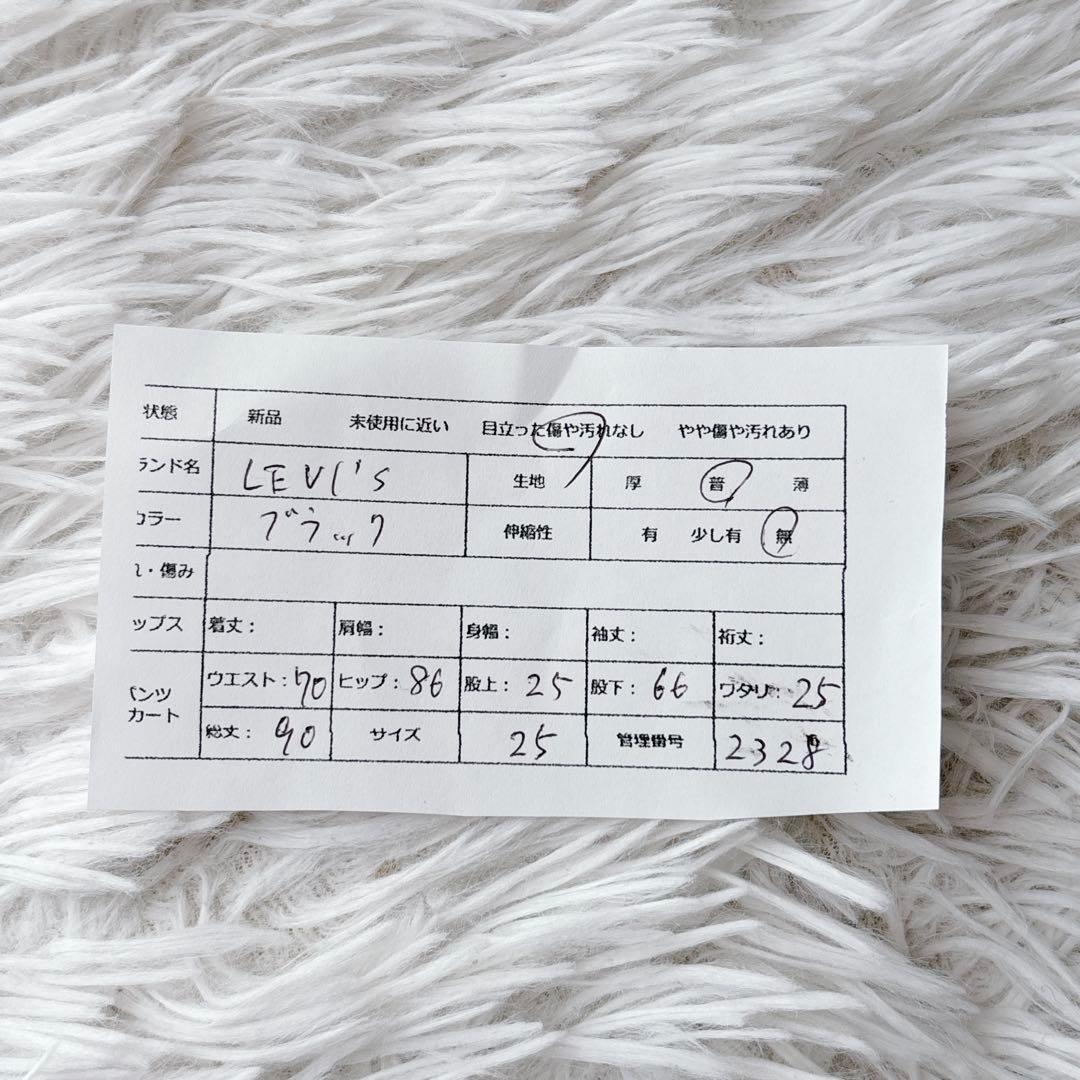 状態 新品 未使用に近い 目立った傷や汚れなし やや傷や汚れあり
ランド名 LEVI'S 生地 厚 普 薄
カラー ブラック 伸縮性 有 少し有 無
・傷み
ップス 着丈： 肩幅： 身幅： 袖丈： 裄丈：
パンツ ウエスト：70 ヒップ：86 股上：25 股下：66 ワタリ：25
カート
総丈：90 サイズ 25 管理番号 2328